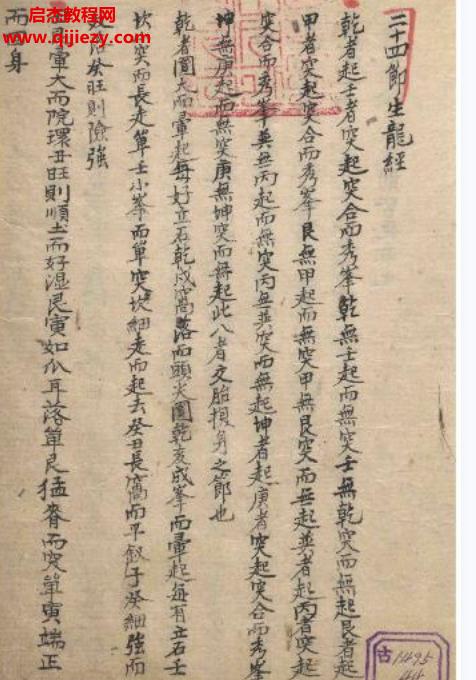 启杰易数
www.qijiezy.cn
二十四節生龍經
乾者起壬者突起突合而秀峯乾無壬起而無突壬無乾突而無起艮者起
甲者突起突合而秀峯艮無甲起而無突甲無艮突而無起巽者起丙者突起
突合而秀峯巽無丙起而無突丙無巽突而無起坤者起庚者突起突合而秀峯
坤無庚起而無突庚無坤突而無起此八者交胎損身之節也
乾者圓大而暈起每好立石乾戌窩落而頭尖圓乾亥成峯而暈起每有立石壬
坎突而長走單壬小峯而單突坎細走而起去癸丑長窩而平叙子癸細強而
癸旺則險強
暈大而院環丑旺則順土而好湿艮寅如瓜耳落單艮猛脊而突單寅端正
而身
古1495